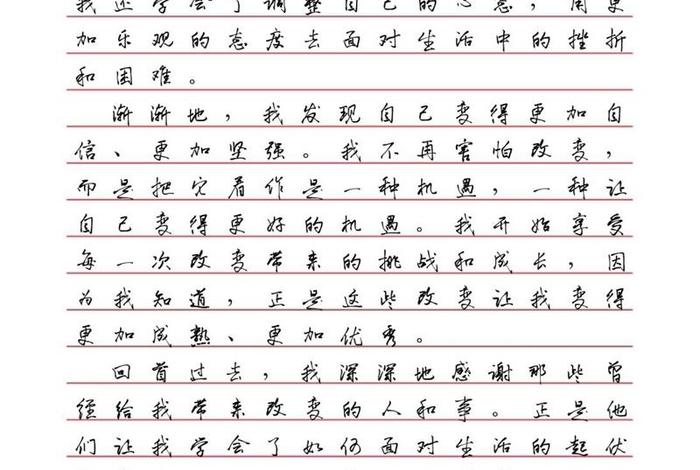 我还学会了调整自己的心态，用更
加乐观的态度去面对生活中的挫折
和困难。
渐渐地，我发现自己变得更加自
信、更加坚强。我不再害怕改变，
而是把它看作是一种机遇，一种让
自己变得更好的机遇。我开始享受
每一次改变带来的挑战和成长，因
为我知道，正是这些改变让我变得
更加成熟、更加优秀。
回首过去，我深深地感谢那些曾
经给我带来改变的人和事。正是他
们让我学会了如何面对生活的起伏